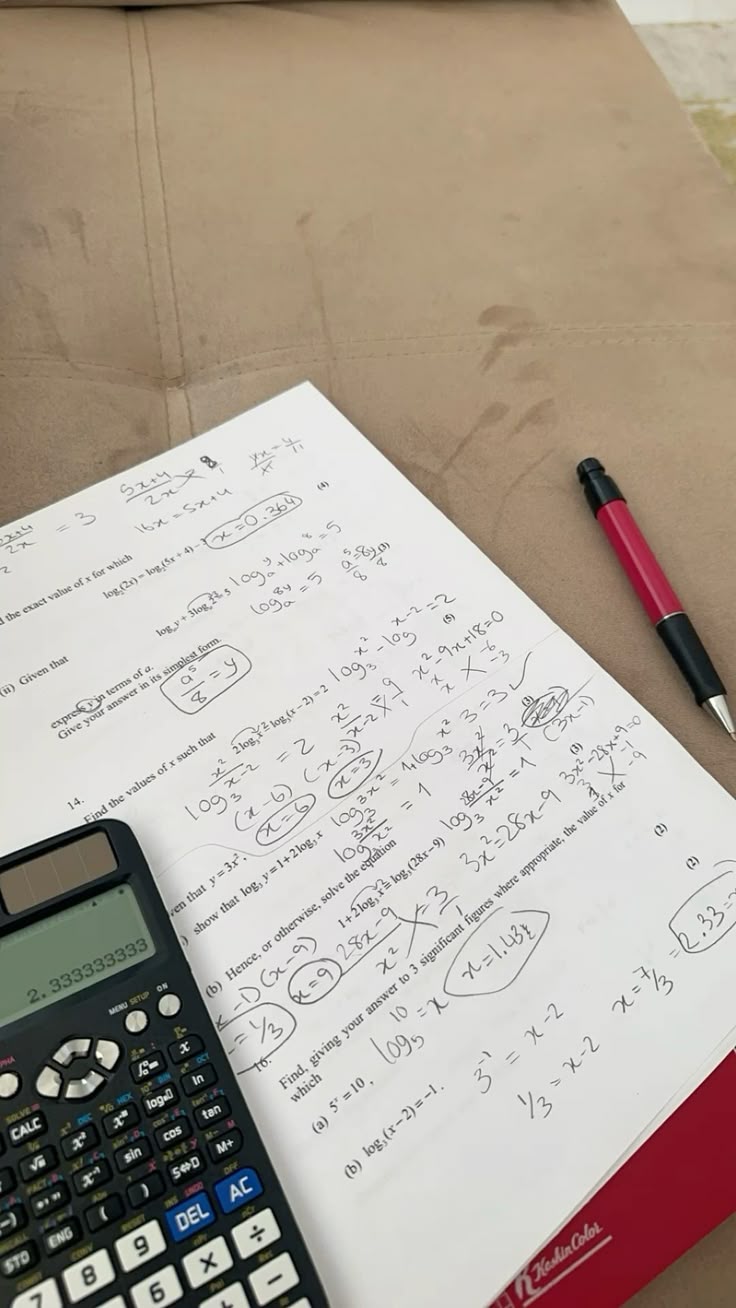 5x+4
2x
= 3
5x+4
2x
8
1
16x = 5x+4
x = 0.364
(4)
the exact value of x for which
log₂(2x) = log₂(5x + 4) −
(ii) Given that
logₐ y + 3logₐ 2 = 5
logₐ y + logₐ 8 = 5
logₐ 8y = 5
a⁵ = 8y
8 8
(3)
express y in terms of a.
Give your answer in its simplest form.
a⁵
8
= y
14.
Find the values of x such that
2log₃ x − log₃(x − 2) = 2
log₃ x² − log x−2 = 2
(5)
log₃ x²
x−2
= 2
x²
x−2
9
1
x² − 9x + 18 = 0
x −6
x −3
(x−6) (x−3)
x = 6
x = 3
en that y = 3x²,
show that log₃ y = 1 + 2log₃ x
(3)
log₃ 3x² =
log 3x²
x²
= 1
3x²
x²
3
1
(b) Hence, or otherwise, solve the equation
1 + 2log₃ x = log₃(28x − 9)
(3)
log₃ 28x−9
x²
= 1
(3x−1)
28x−9
x²
3
1
3x² = 28x−9
3x² − 28x + 9 = 0
3 −1
−9
−1) (x−9)
x = 9
= 1/3
16.
Find, giving your answer to 3 significant figures where appropriate, the value of x for
which
(a) 5ˣ = 10,
(2)
log₅ 10 = x
x = 1.43
(b) log₃(x − 2) = −1.
(2)
3⁻¹ = x−2
1/3 = x−2
x = 7/3
= 2.33
2.333333333
MENU SETUP
ON
CALC
ln
log
sin
cos
tan
S⇔D
M+
STO
ENG
(
)
DEL
AC
7
8
9
6
×
÷
+
−
KeskinColor